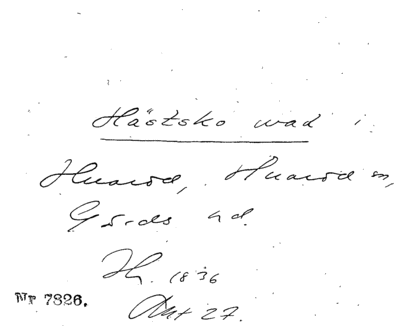 Hästsko wad i
Huaröd, Huaröd sn,
Gärds hd.
Th. 1836
Akt 27.
Nr 7826.